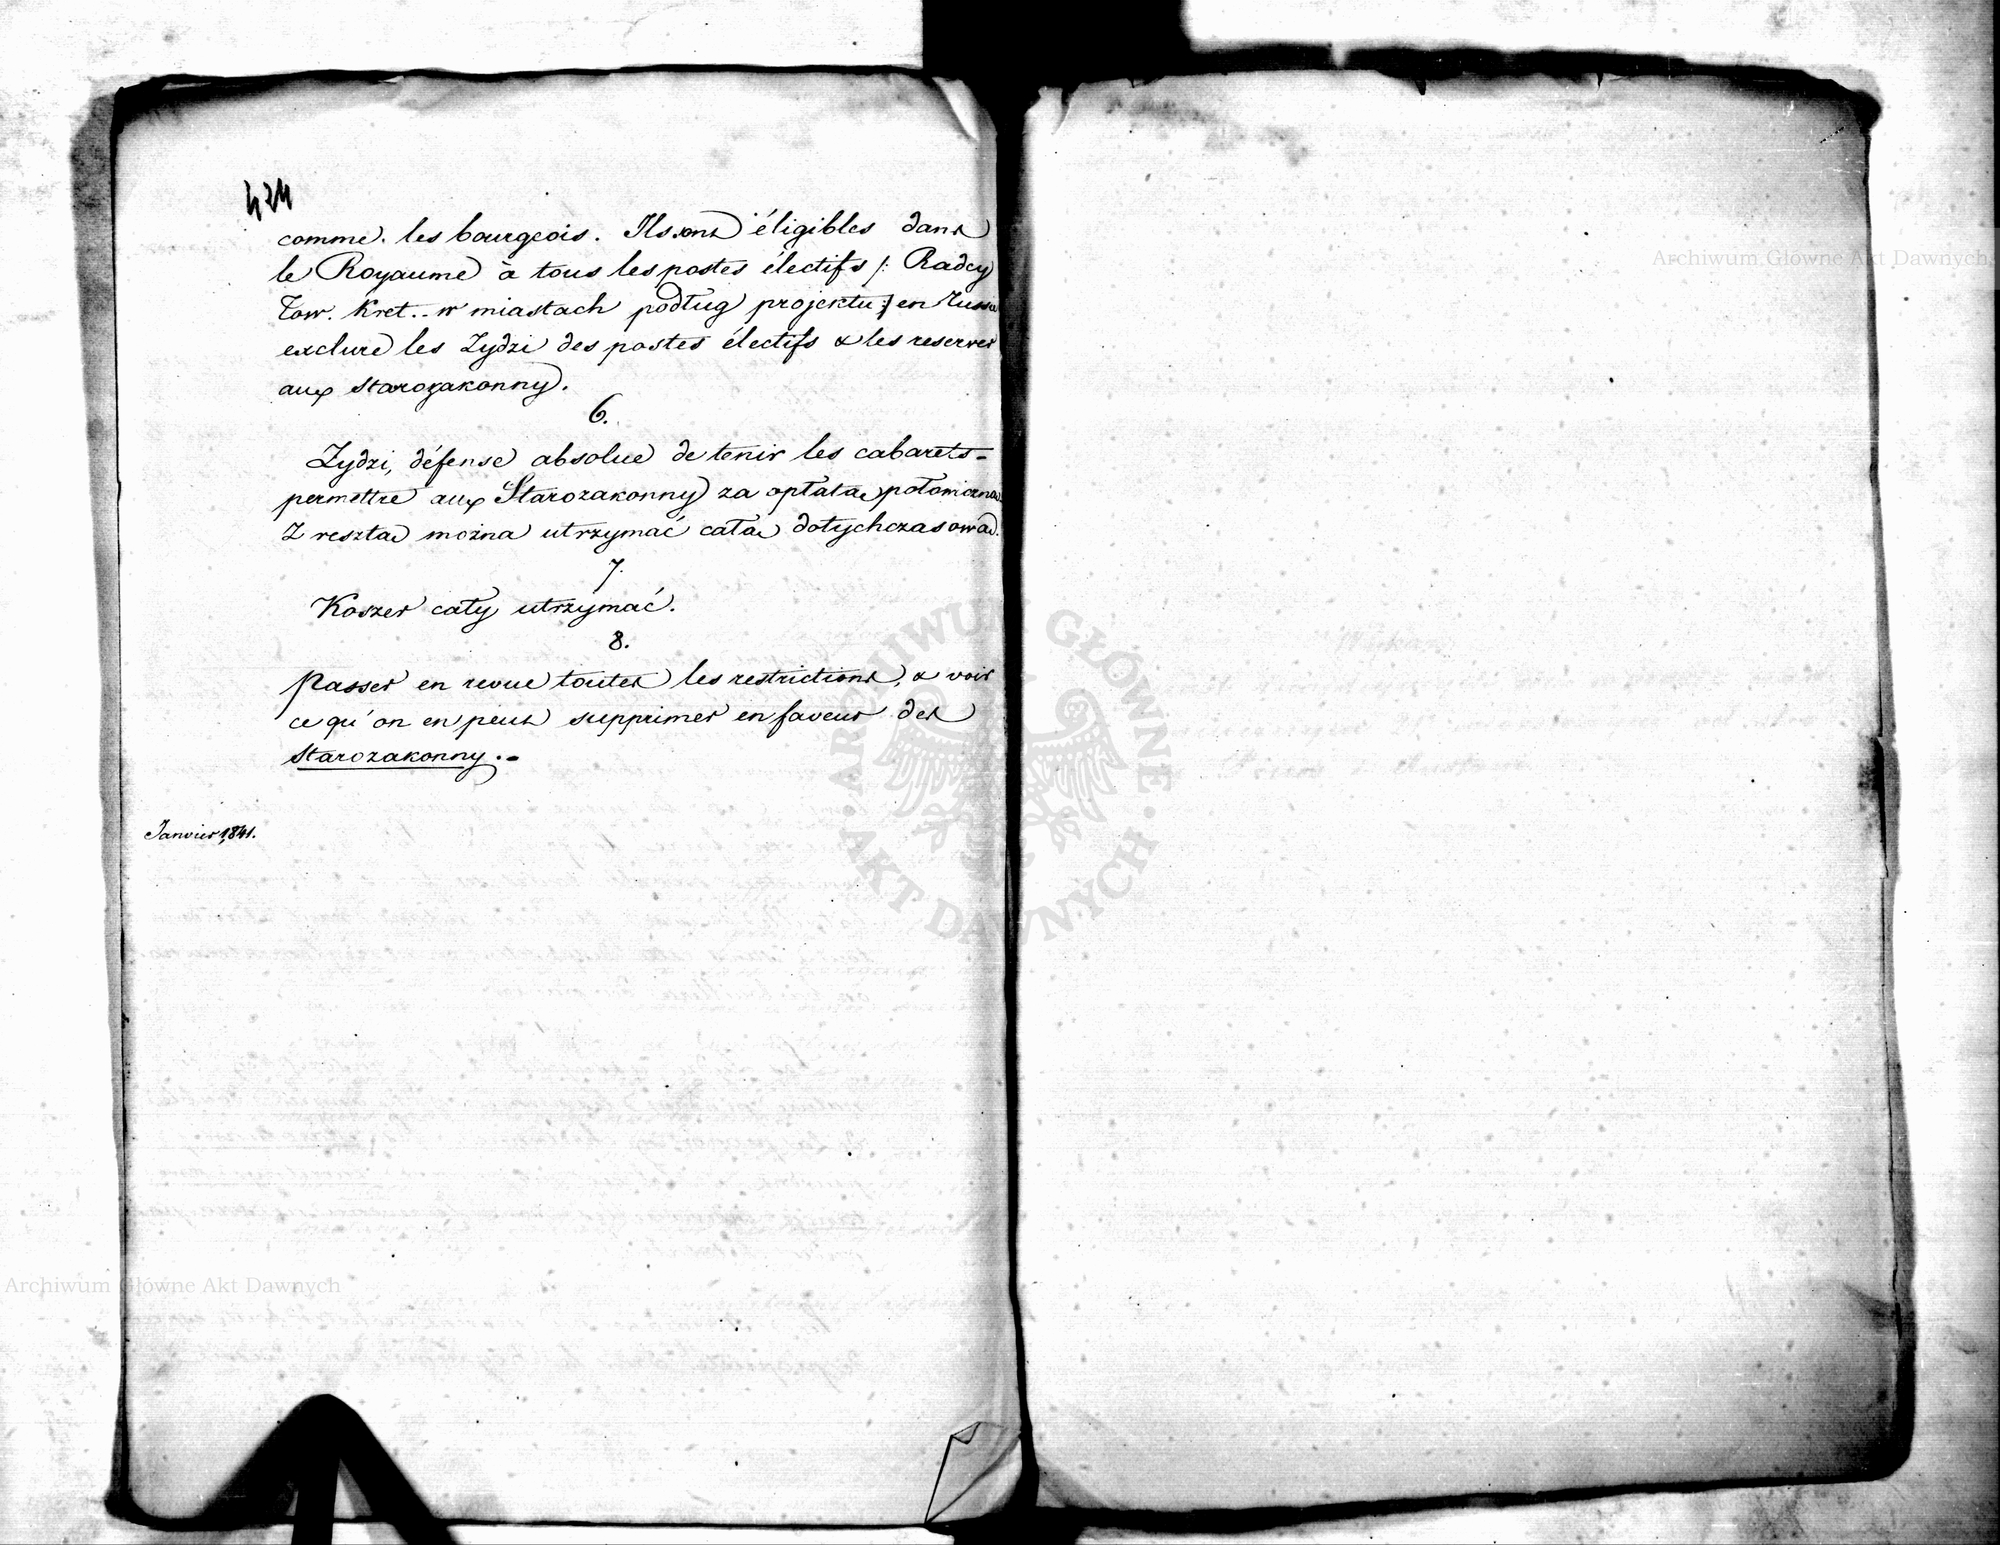 424
comme les bourgeois. Ils sont éligibles dans
le Royaume à tous les postes électifs /: Radcy
Tow. Kret.. w miastach podług projektu :/ en Russie
exclure les Żydzi des postes électifs & les reserver
aux starozakonny.
6.
Żydzi, défense absolue de tenir les cabarets -
permettre aux Starozakonny za opłatą połowiczną.
Z resztą można utrzymać całą dotychczasową.
7.
Koszer cały utrzymać.
8.
Passer en revue toutes les restrictions, & voir
ce qu'on en peut supprimer en faveur des
starozakonny. -
Janvier 1841.
Archiwum Główne Akt Dawnych
Archiwum Główne Akt Dawnych
ARCHIWUM GŁÓWNE · AKT DAWNYCH ·